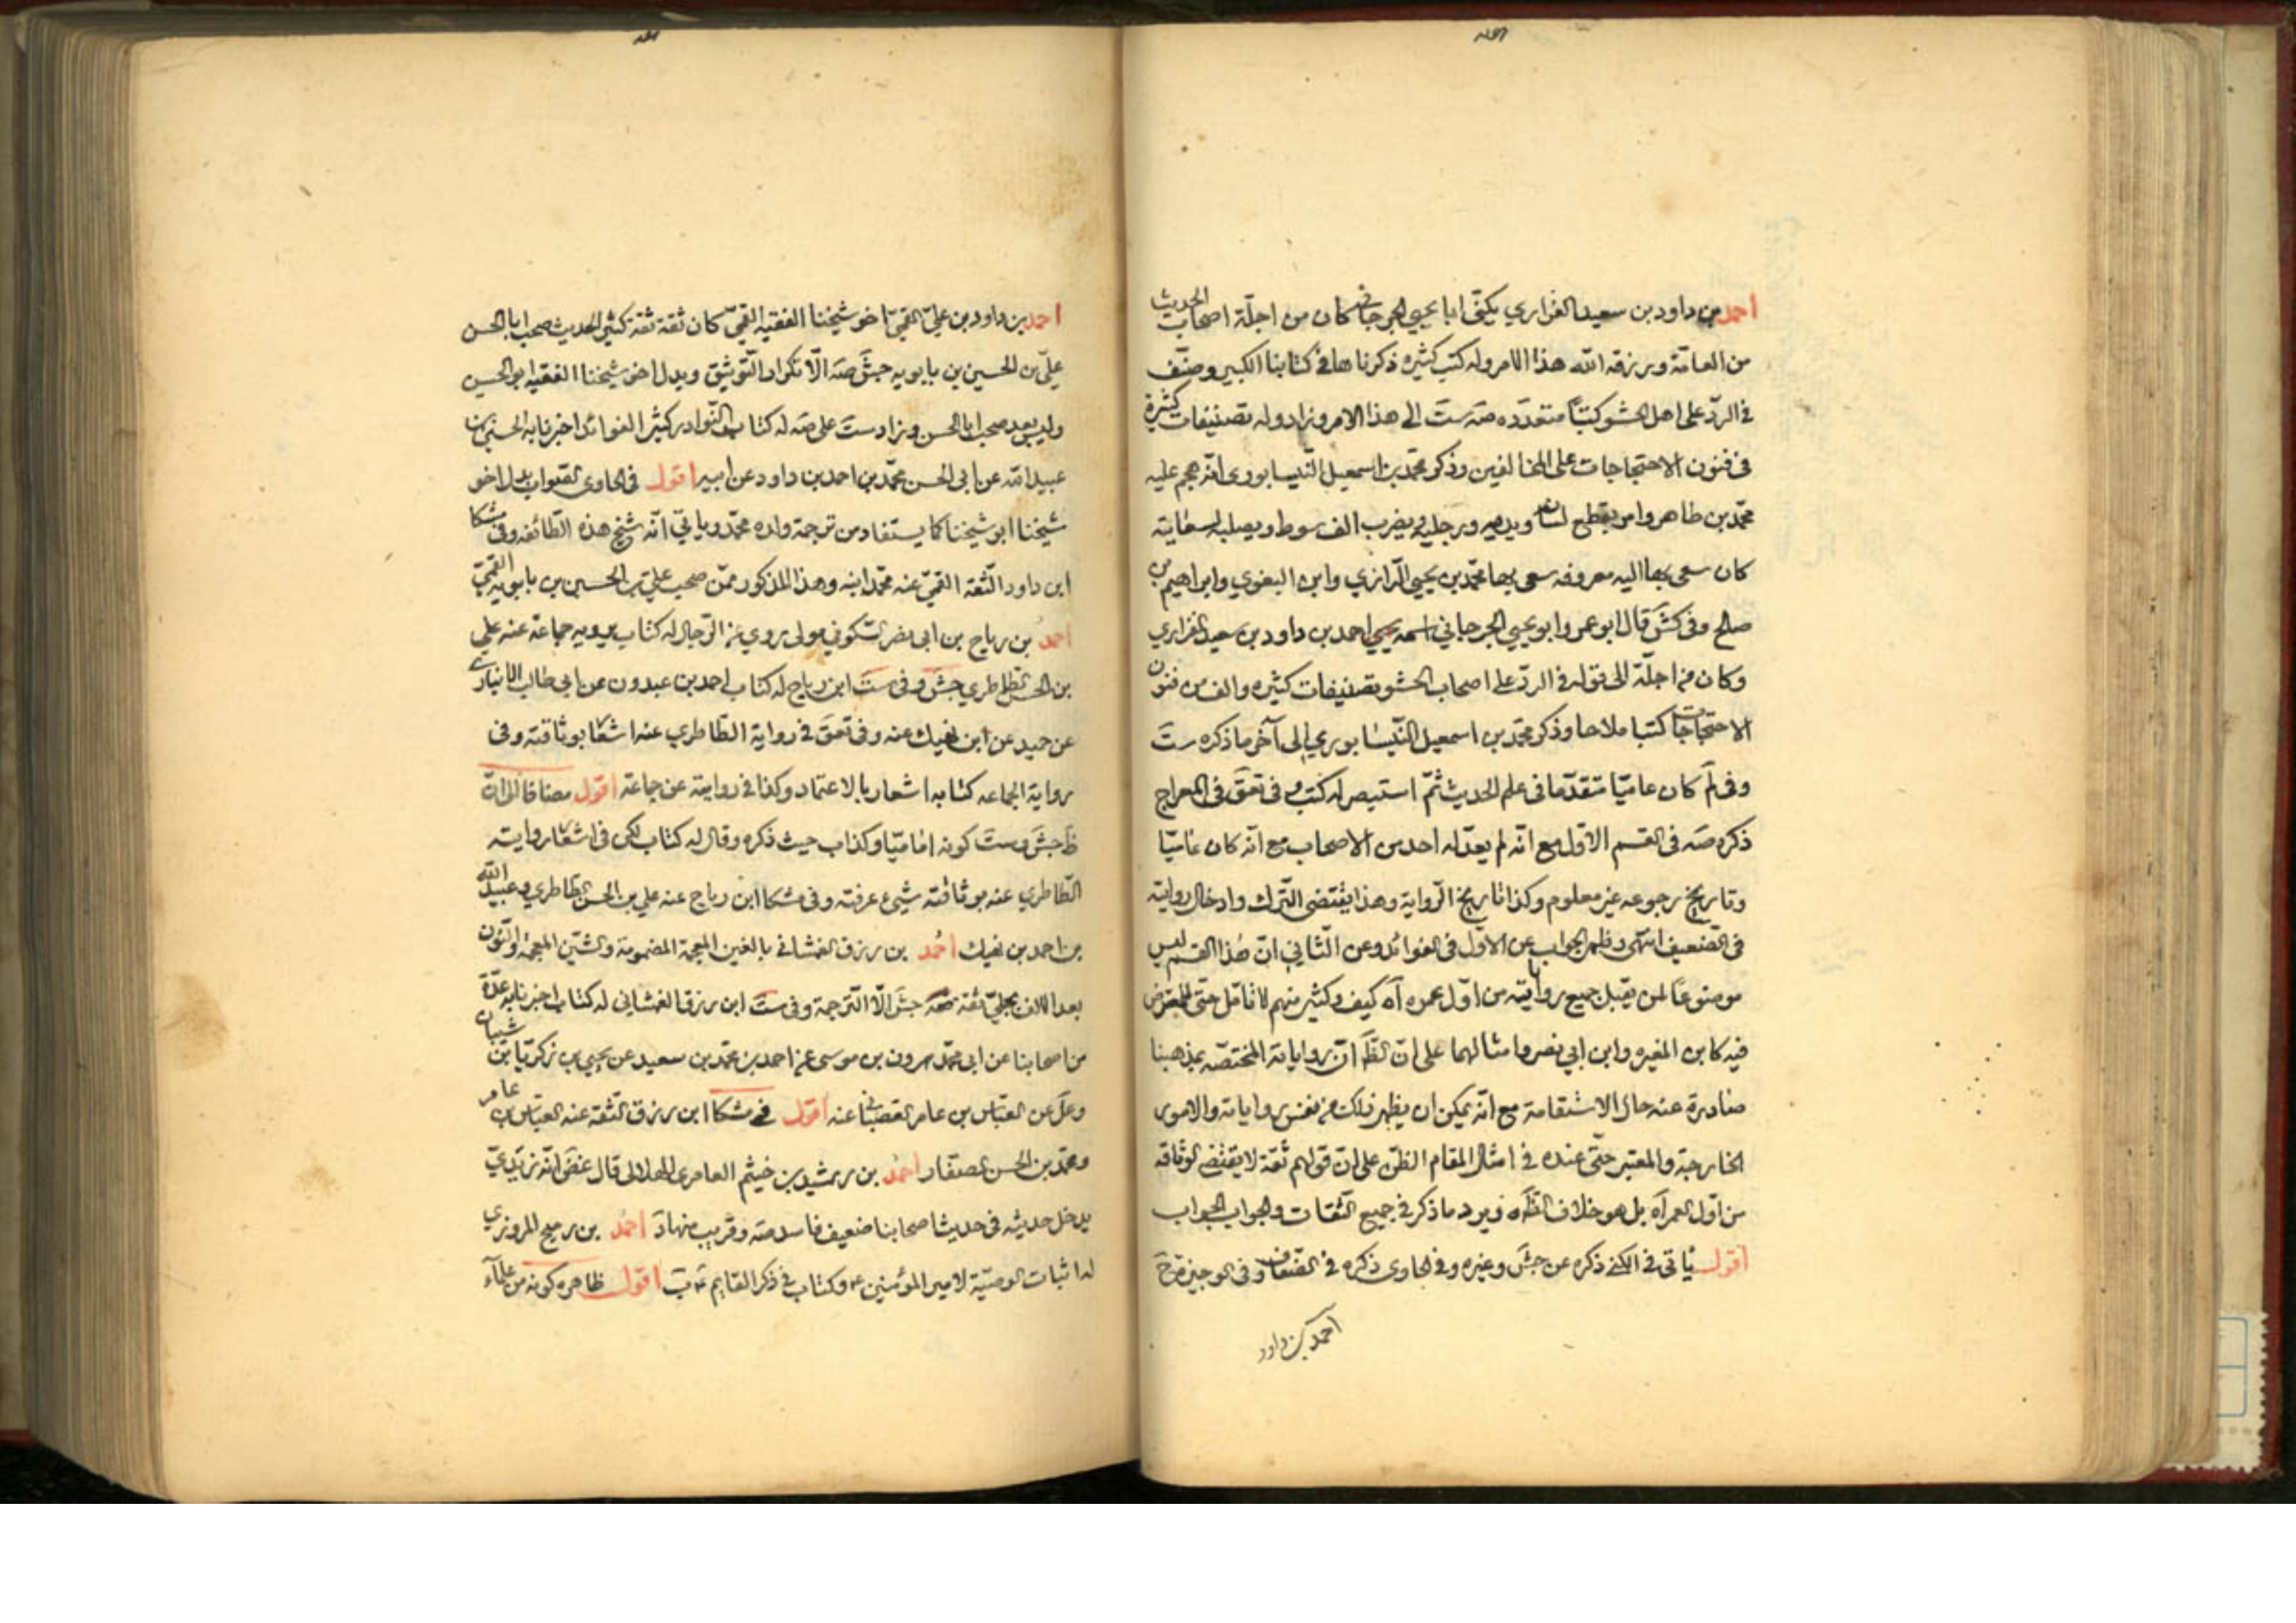 احمد بن داود بن سعيد الفزاري يكنى ابا يحيى الجرجاني كان من اجلة اصحاب الحديث
من العامة ورزقه الله هذا الامر وله كتب كثيرة ذكرناها في كتابنا الكبير وصنف
في الرد على اهل الحشو كتبا متعدده صه ست الى هذا الامر وزاد وله تصنيفات كثيرة
في فنون الاحتجاجات على المخالفين وذكر محمد بن اسمعيل النيسابوري انه هجم عليه
محمد بن طاهر وامر بقطع لسانه ويديه ورجليه وبضرب الف سوط ويصلبه لسعاية
كان سعى بها اليه معروفه سعى بها محمد بن يحيى الرازي وابن البغوي وابراهيم بن
صالح وفي كش قال ابو عمرو ابو يحيى الجرجاني اسمه احمد بن داود بن سعيد الفزاري
وكان من اجلة الى قوله في الرد على اصحاب الحشو تصنيفات كثيره والف من فنون
الاحتجاجات كتبا ملاحا وذكر محمد بن اسمعيل النيسابوري الى آخر ما ذكره ست
وفي لم كان عاميا متقدما في علم الحديث ثم استبصر له كتب وفي تعق في المعراج
ذكره صه في القسم الاول مع انه لم يعدله احد من الاصحاب مع انه كان عاميا
وتاريخ رجوعه غير معلوم وكذا تاريخ الرواية وهذا يقتضي الترك وادخال روايته
في الضعيف انتهى وظهر الجواب عن الاول في الفوائد وعن الثاني ان هذا القسم ليس
موضوعا لمن يقبل جميع رواياته من اول عمره آه كيف وكثير منهم لا تامل حتى للمعترض
فيه كابن المغيره وابن ابي نصر وامثالهما على ان الظ ان رواياته المختصه بمذهبنا
صادرة عنه حال الاستقامة مع انه يمكن ان يظهر ذلك من نفس رواياته والامور
الخارجة والمعتبر حتى عنده في امثال المقام الظن على ان قولهم ثقة لا يقتضي الوثاقه
من اول العمر آه بل هو خلاف الظاه ويرد ما ذكر في جميع الثقات والجواب الجواب
اقول ياتي في الكنى ذكره عن جش وغيره وفي الحاوي ذكره في الضعاف وفي الوجيزة ح
احمد بن داود
احمد بن داود بن علي القمي اخو شيخنا الفقيه القمي كان ثقة ثقة كثير الحديث صحب ابا الحسن
علي بن الحسين بن بابويه جش صه الا تكرار التوثيق وبدل اخو شيخنا الفقيه ابو الحسين
وليس بعد صحب ابا الحسن وزاد ست على صه له كتاب النوادر كثير الفوائد اخبرنا به الحسين بن
عبيد الله عن ابي الحسن محمد بن احمد بن داود عن ابيه اقول في الحاوي الصواب بدل اخو
شيخنا ابو شيخنا كما يستفاد من ترجمة ولده محمد وياتي انه شيخ هذه الطائفه وفي مشكا
ابن داود الثقة القمي عنه محمد ابنه وهذا المذكور ممن صحب علي بن الحسين بن بابويه القمي
احمد بن رباح بن ابي نصر السكوني مولى روى عن الرجال له كتاب يرويه جماعة عنه علي
بن الحسن الطاطري جش وفي ست ابن رباح له كتاب احمد بن عبدون عن ابي طالب الانباري
عن حميد عن ابن نهيك عنه وفي تعق في رواية الطاطري عنه اشعار بوثاقته وفي
رواية الجماعه كتابه اشعار بالاعتماد وكذا في روايته عن جماعة اقول مضافا الى ان
ظ جش وست كونه اماميا وكذا ب حيث ذكره وقال له كتاب لكن في اشعار رواية
الطاطري عنه بوثاقته شيء عرفته وفي مشكا ابن رباح عنه علي بن الحسن الطاطري وعبيد الله
بن احمد بن نهيك احمد بن رزق الغمشاني بالغين المعجمة المضمومة والشين المعجمة والنون
بعد الالف بجلي ثقة صه جش الا الترجمة وفي ست ابن رزق الغمشاني له كتاب اخبرنا به عدة
من اصحابنا عن ابي محمد هرون بن موسى عن احمد بن محمد بن سعيد عن يحيى بن زكريا بن شيبان
وعل عن العباس بن عامر القصباني عنه اقول في مشكا ابن رزق الثقة عنه العباس بن عامر
ومحمد بن الحسن الصفار احمد بن رشيد بن خيثم العامري الهلالي قال غض انه زيدي
يدخل حديثه في حديث اصحابنا ضعيف فاسد صه وقريب منها د احمد بن رميح المروزي
له اثبات الوصية لامير المؤمنين ع وكتاب في ذكر القايم ع ب اقول ظاهره كونه من علماء